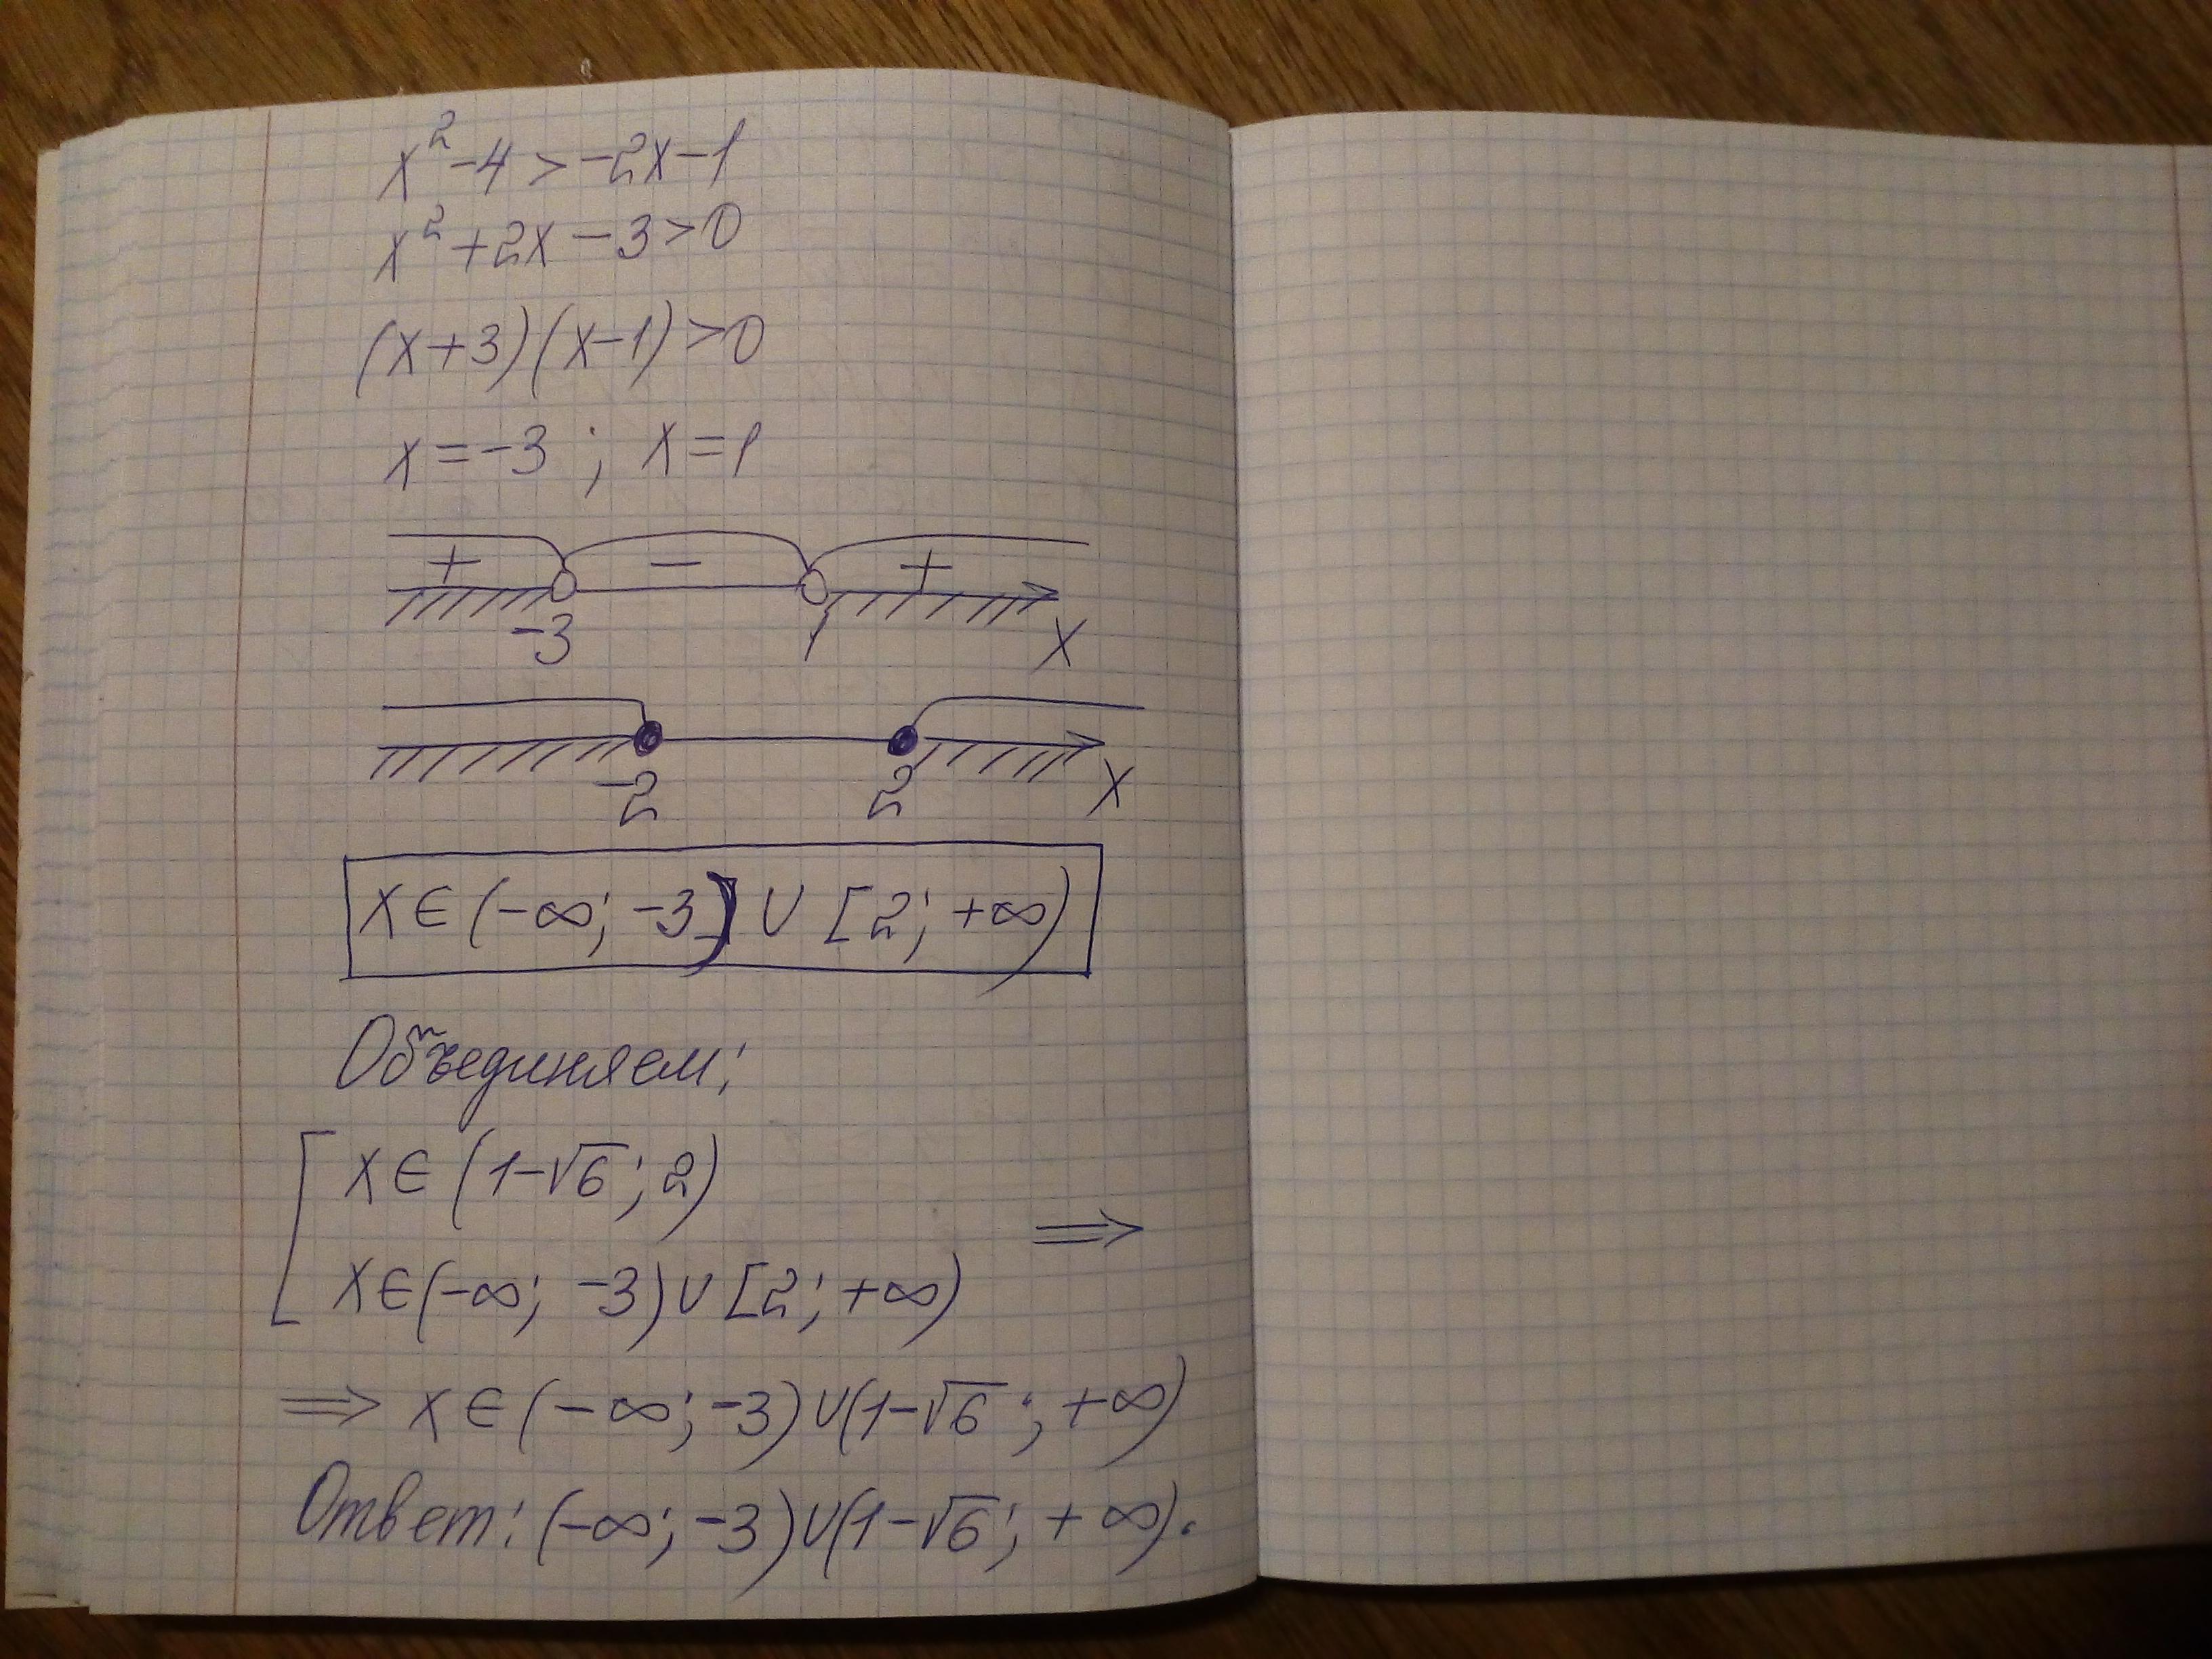 x² - 4 > -2x - 1
x² + 2x - 3 > 0
(x+3)(x-1) > 0
x = -3 ; x = 1
+ - +
-3 1 x
-2 2 x
x ∈ (-∞; -3) ∪ [2; +∞)
Объединяем:
x ∈ (1-√6; 2)
⇒
x ∈ (-∞; -3) ∪ [2; +∞)
⇒ x ∈ (-∞; -3) ∪ (1-√6; +∞)
Ответ: (-∞; -3) ∪ (1-√6; +∞).